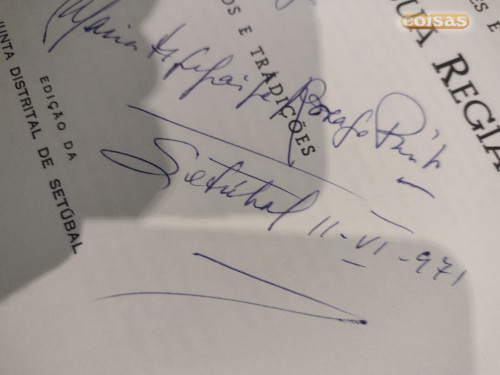 coisas
S E
GUA REGIA
OS E TRADIÇÕES
Maria
Pinto
Setúbal 11-VI-971
EDIÇÃO DA
JUNTA DISTRITAL DE SETÚBAL